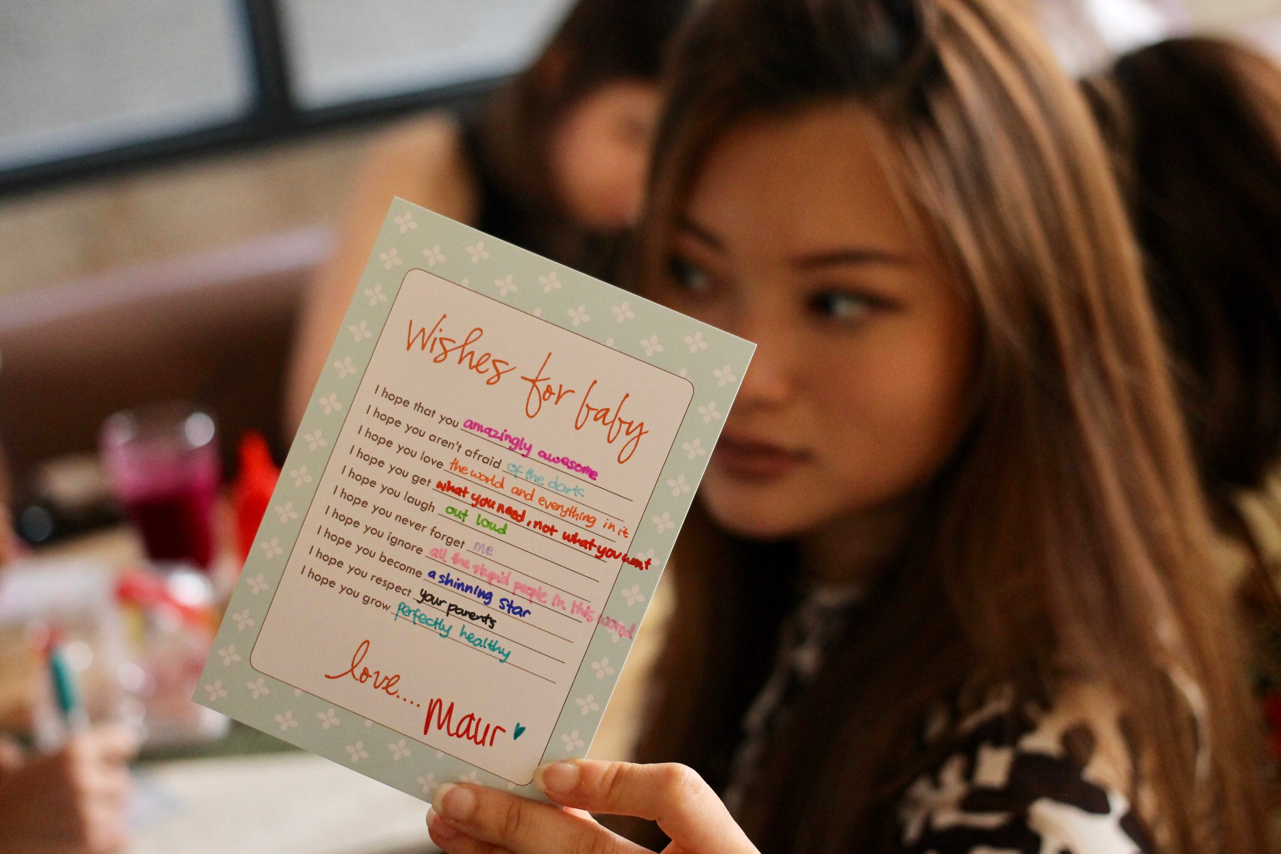 Wishes for baby
I hope that you amazingly awesome
I hope you aren't afraid of the darts
I hope you love the world and everything in it
I hope you get what you need, not what you want
I hope you laugh out loud
I hope you never forget me
I hope you ignore all the stupid people in this world
I hope you become a shinning star
I hope you respect your parents
I hope you grow perfectly healthy
love.... Maur